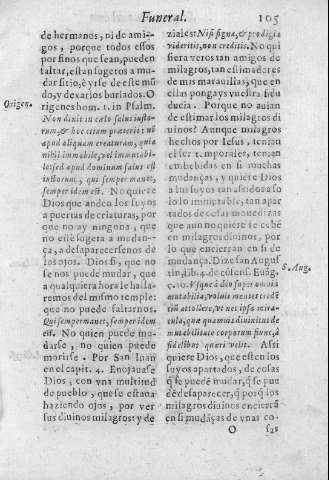 Funeral.
105
de hermanos, ni de ami-
gos, porque todos essos
por finos que sean, pueden
faltar, estan sugetos a mu-
dar sitio, è yrse de este mũ
do, y dexarlos burlados. O
rigenes hom. 1. in Psalm.
Non dixit in cælo salus iusto-
rum, & hoc etiam præterit: nõ
apud aliquam creaturam, quia
nihil immobile, vel immutabi-
le: sed apud dominum salus est
iustorum, qui semper manet,
semper idem est. No quiere
Dios que anden los suyos
a puertas de criaturas, por
que no ay ninguna, que
no esté sugeta a mudan-
ça, a desaparecersenos de
los ojos. Dios si, que no
se nos puede mudar, que
a qualquiera hora le halla-
remos del mismo temple:
que no puede faltarnos.
Qui semper manet, semper idem
est. No quien puede mu-
darse, no quien puede
morirse. Por San Iuan
en el capit. 4. Enojauase
Dios, con vna multitud
de pueblo, que se estaua
haziendo ojos, por ver
sus diuinos milagros: y de
Origen.
ziales: Nisi signa, & prodigia
videritis, non creditis. No qui
siera veros tan amigos de
milagros, tan estimadores
de mis marauillas; que en
ellas pongays vuestra fidu
ducia. Porque no auian
de estimar los milagros di
uinos? Aunque milagros
hechos por Iesus, tenian
el ser temporales, tenian
embebidas en si muchas
mudanças, y quiere Dios
a los suyos tan asidos a so
lo lo inmutable, tan apar
tados de cosas mouedizas
que aun no quiere se cebẽ
en milagros diuinos, por
lo que encierran en si de
mudança. Dize san Augus
tin, lib. 4. de cõsens. Euãg.
c. 10. Vsque à deo super omnia
mutabilia, voluit mentes credẽ
tiũ attollere, vt nec ipsa mira-
cula, quæ quamuis diuinitus de
mutabilitate corporum fiunt, à
fidelibus quæri velit. Assi
quiere Dios, que esten los
suyos apartados, de cosas
q̃ se puedẽ mudar, q̃ se pue
dẽ desaparecer, q̃ porq̃ los
milagros diuinos encierrã
en si mudãças de vnas co-
S. Aug.
O
sas